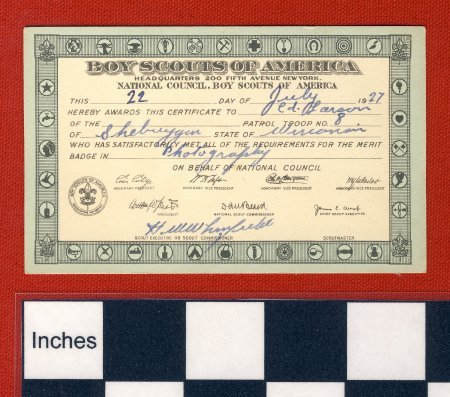 BOY SCOUTS OF AMERICA
HEADQUARTERS 200 FIFTH AVENUE NEW YORK.
NATIONAL COUNCIL, BOY SCOUTS OF AMERICA
THIS 22 DAY OF July 1927
HEREBY AWARDS THIS CERTIFICATE TO Ed. Larson
OF THE PATROL TROOP NO. 8
OF Sheboygan STATE OF Wisconsin
WHO HAS SATISFACTORILY MET ALL OF THE REQUIREMENTS FOR THE MERIT
BADGE IN Photography
ON BEHALF OF NATIONAL COUNCIL
HONORARY PRESIDENT HONORARY VICE PRESIDENT HONORARY VICE PRESIDENT HONORARY VICE PRESIDENT
PRESIDENT NATIONAL SCOUT COMMISSIONER CHIEF SCOUT EXECUTIVE
SCOUT EXECUTIVE OR SCOUT COMMISSIONER SCOUTMASTER
Inches